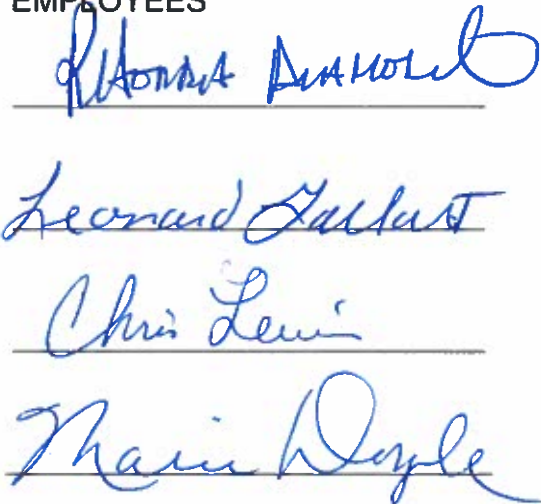 EMPLOYEES
Rhonda Diamond
Leonard Gallant
Chris Lewis
Marie Doyle